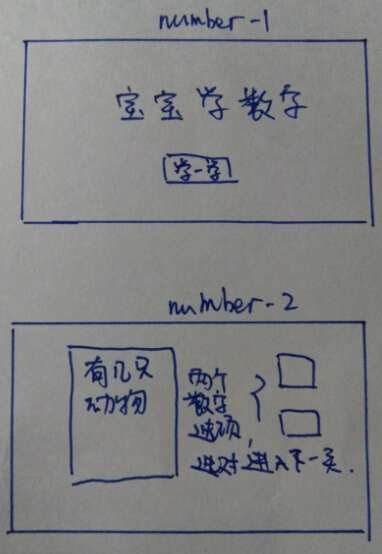 number-1
宝宝学数字
学一学
number-2
有几只
动物
两个
数字
选项,
选对进入下一关.